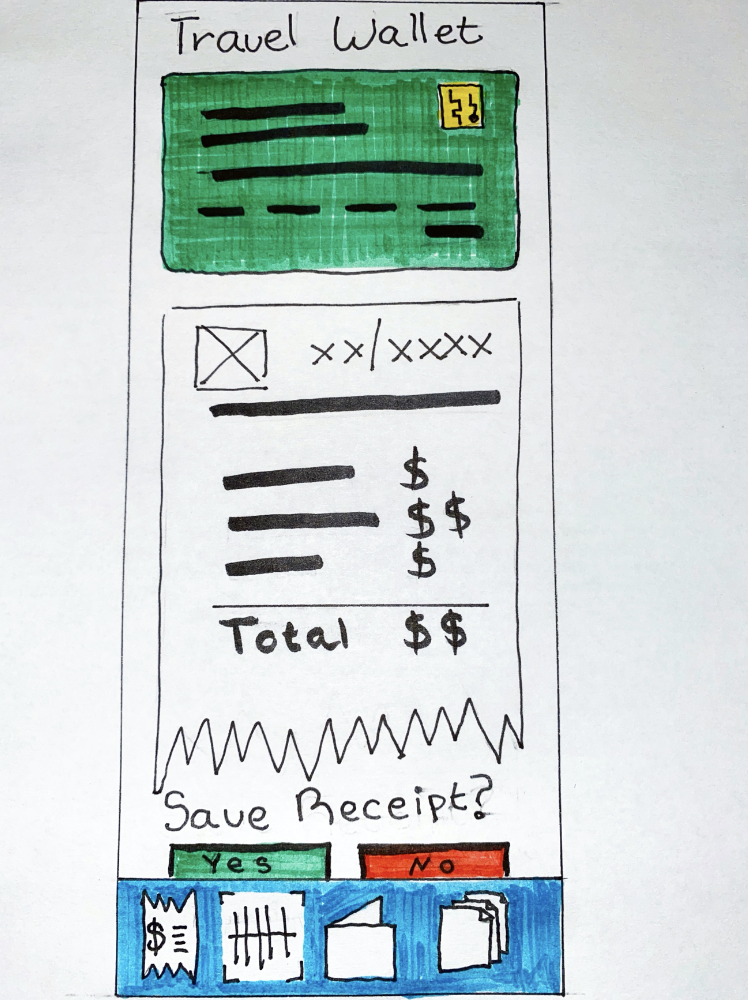 Travel Wallet
xx/xxxx
$
$$
$
Total $$
Save Receipt?
Yes No
$